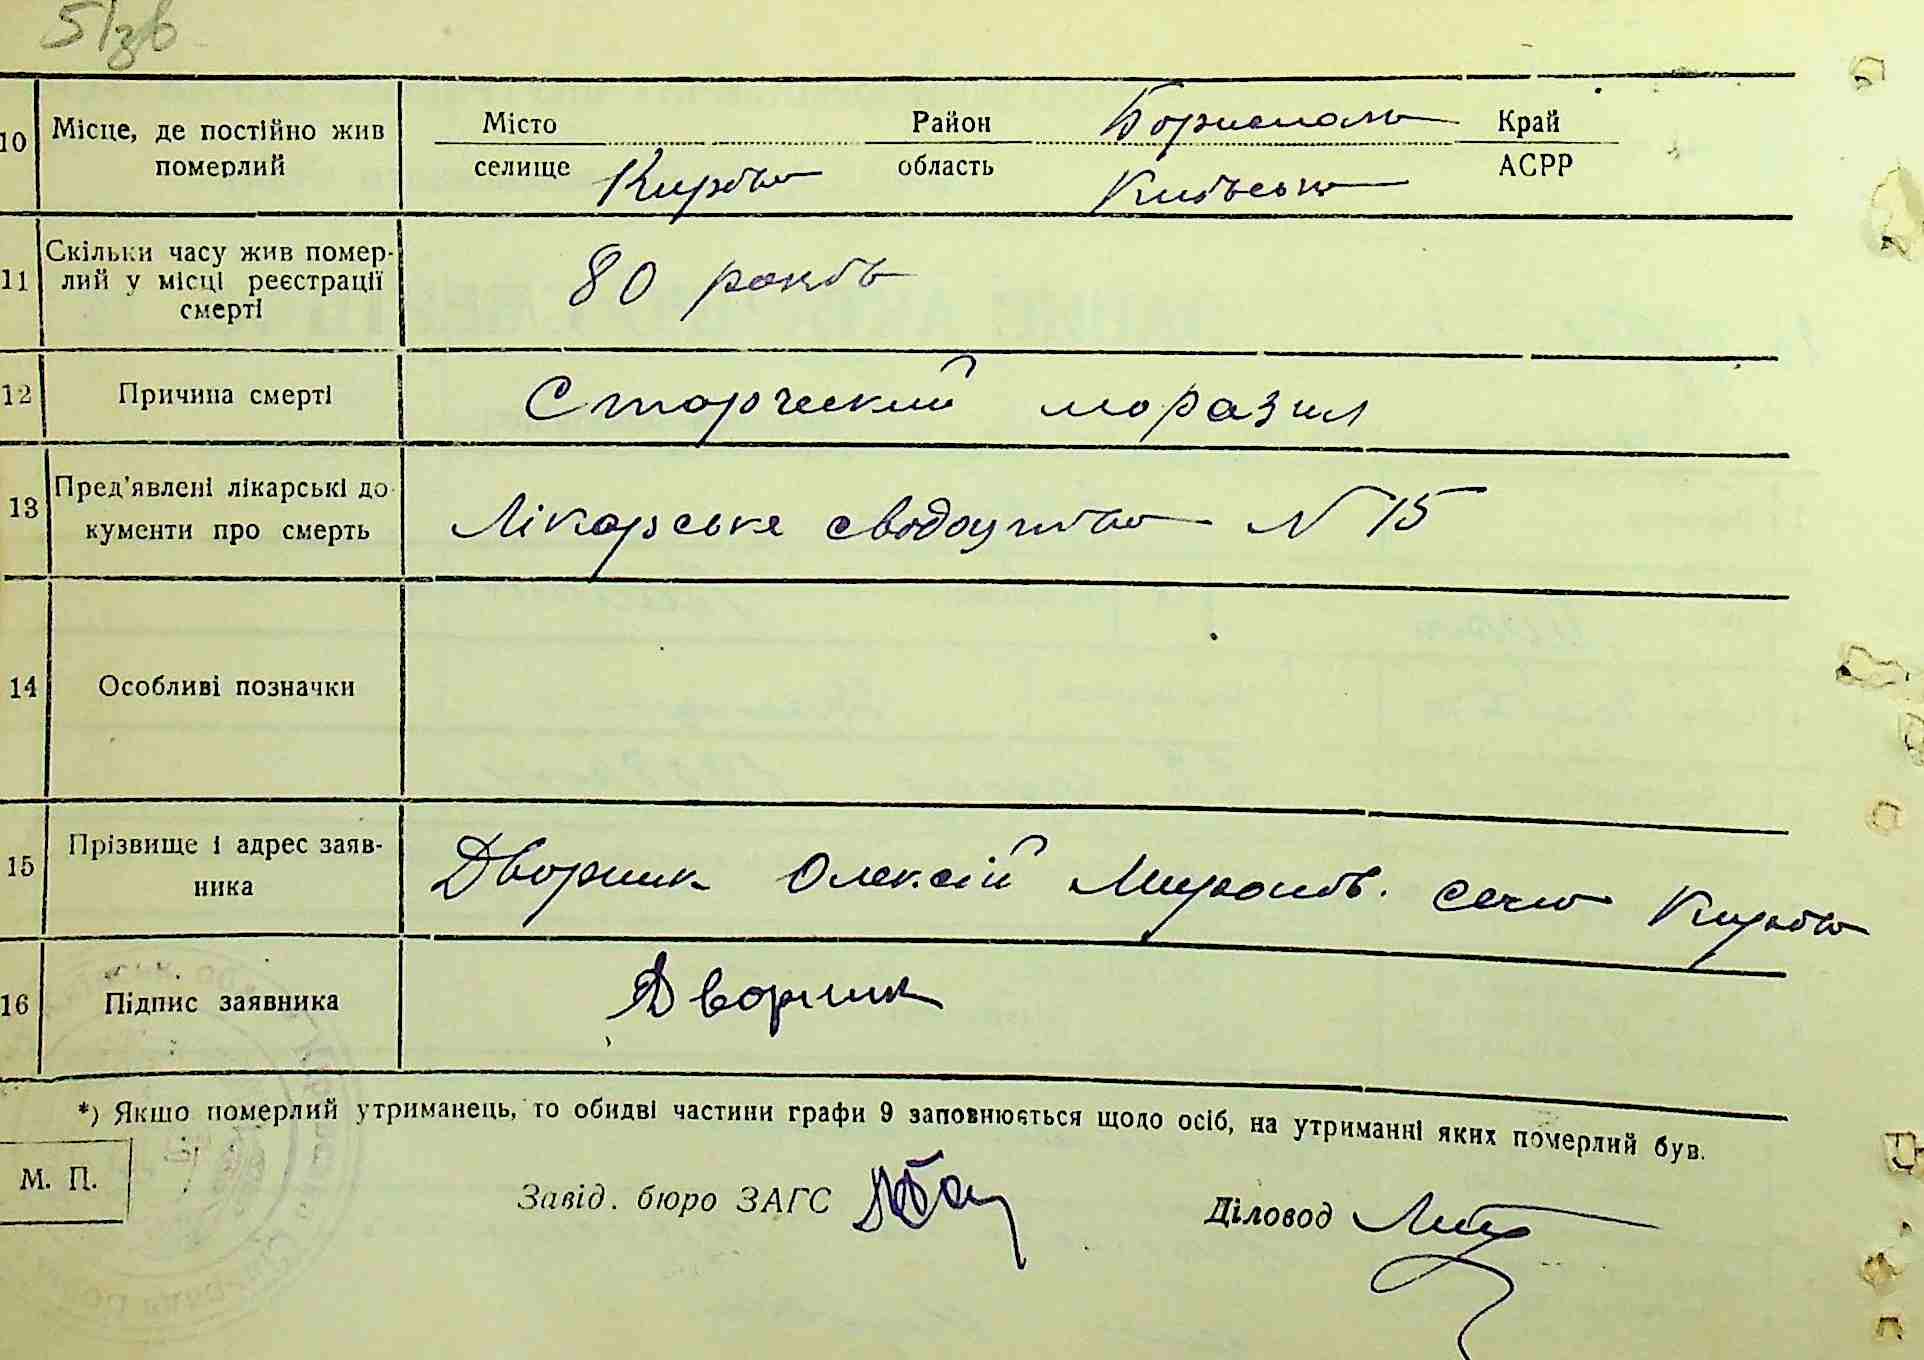 51зв
10 Місце, де постійно жив померлий Місто селище Кирово Район Бориспольс область Київська Край АСРР
11 Скільки часу жив помер-
лий у місці реєстрації
смерті
80 років
12 Причина смерті Старческий моразм
13 Пред'явлені лікарські до-
кументи про смерть
Лікарське свідоцтво N 15
14 Особливі позначки
15 Прізвище і адрес заяв-
ника
Дворник Олексій Миронов. село Кирово
16 Підпис заявника Дворник
*) Якшо померлий утриманець, то обидві частини графи 9 заповнюється щодо осіб, на утриманні яких померлий був.
М. П.
Завід. бюро ЗАГС
Діловод